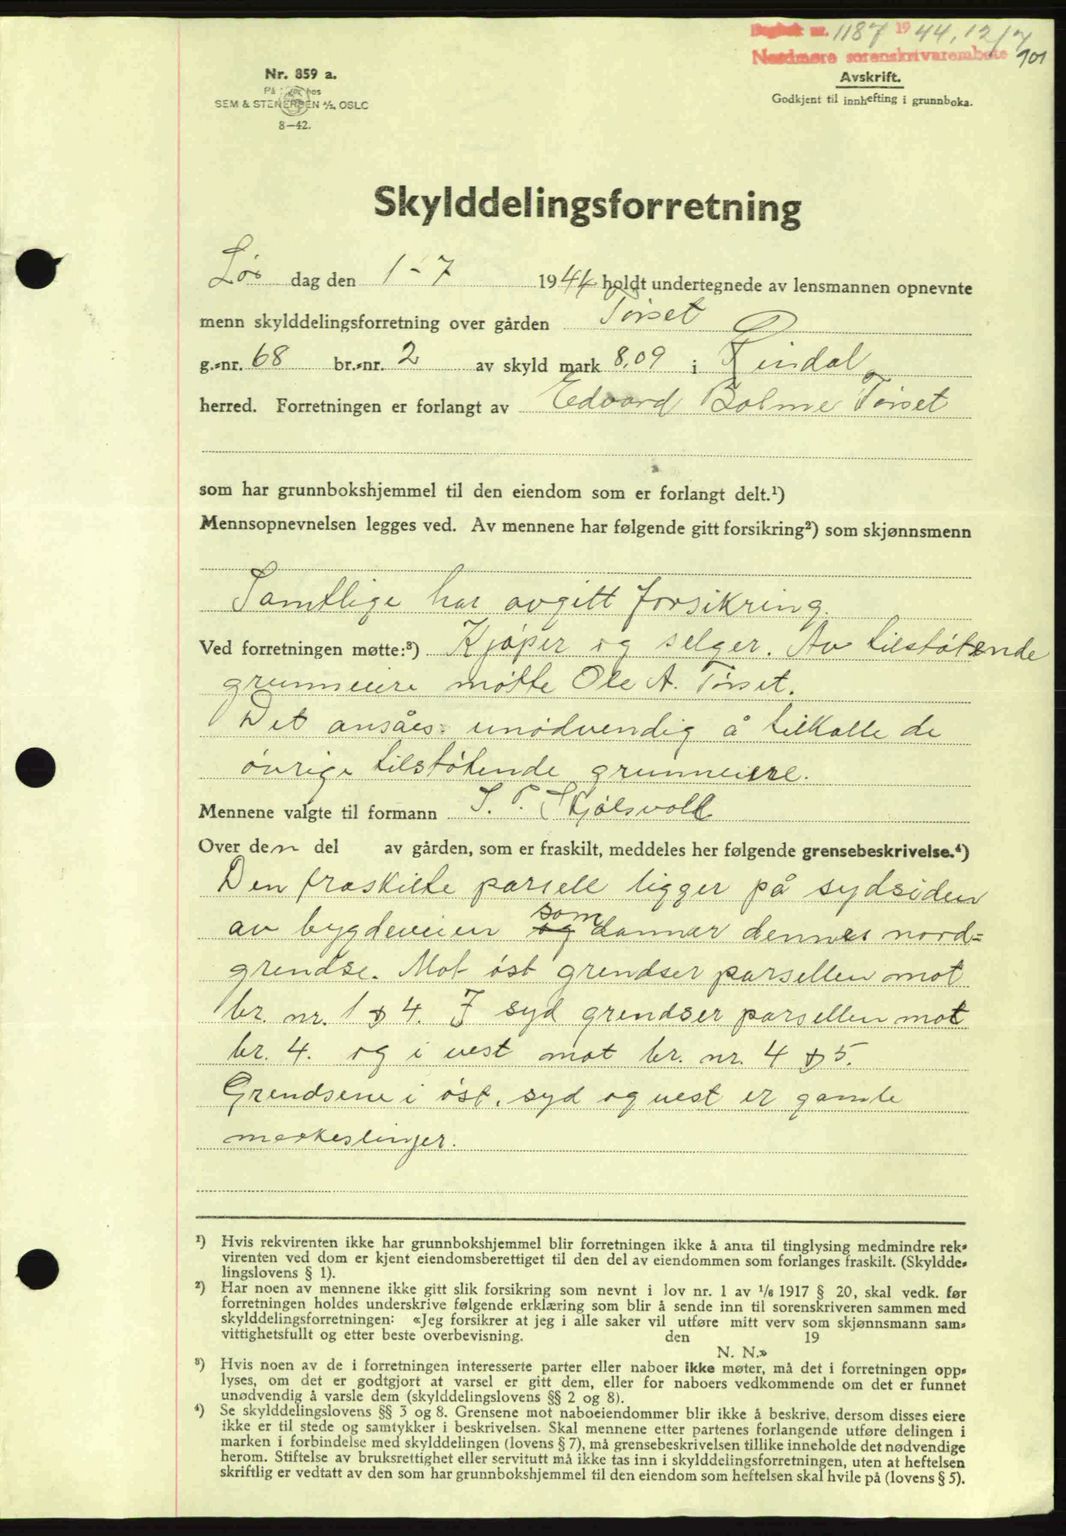 Dagbok nr. 1187 1944, 12/7
Nordmøre sorenskrivarembete 901
Nr. 859 a.
SEM & STENERSEN A/S, OSLO
8-42.
Avskrift.
Godkjent til innhefting i grunnboka.
Skylddelingsforretning
Lør dag den 1-7 1944 holdt undertegnede av lensmannen opnevnte
menn skylddelingsforretning over gården Tørset
g.-nr. 68 br.-nr. 2 av skyld mark 8,09 i Rindal
herred. Forretningen er forlangt av Edvard Bolme Tørset
som har grunnbokshjemmel til den eiendom som er forlangt delt.¹)
Mennsopnevnelsen legges ved. Av mennene har følgende gitt forsikring²) som skjønnsmenn
Samtlige har avgitt forsikring.
Ved forretningen møtte:³) Kjøper og selger. Av tilstøtende
grunneiere møtte Ole A. Tørset.
Det ansåes unødvendig å tilkalle de
øvrige tilstøtende grunneiere.
Mennene valgte til formann S. P. Skjølsvoll
Over den del av gården, som er fraskilt, meddeles her følgende grensebeskrivelse.⁴)
Den fraskilte parsell ligger på sydsiden
av bygdeveien som danner dennes nord=
grendse. Mot øst grendser parsellen mot
br. nr. 1 & 4. I syd grendser parsellen mot
br. 4. og i vest mot br. nr. 4 & 5.
Grendsene i øst, syd og vest er gamle
merkeslinjer.
¹) Hvis rekvirenten ikke har grunnbokshjemmel blir forretningen ikke å anta til tinglysing medmindre rek-
virenten ved dom er kjent eiendomsberettiget til den del av eiendommen som forlanges fraskilt. (Skyldde-
lingslovens § 1).
²) Har noen av mennene ikke gitt slik forsikring som nevnt i lov nr. 1 av 1/6 1917 § 20, skal vedk. før
forretningen holdes underskrive følgende erklæring som blir å sende inn til sorenskriveren sammen med
skylddelingsforretningen: «Jeg forsikrer at jeg i alle saker vil utføre mitt verv som skjønnsmann sam-
vittighetsfullt og etter beste overbevisning. den 19
N. N.»
³) Hvis noen av de i forretningen interesserte parter eller naboer ikke møter, må det i forretningen opp-
lyses, om det er godtgjort at varsel er gitt dem, eller for naboers vedkommende om det er funnet
unødvendig å varsle dem (skylddelingslovens §§ 2 og 8).
⁴) Se skylddelingslovens §§ 3 og 8. Grensene mot naboeiendommer blir ikke å beskrive, dersom disses eiere
ikke er til stede og samtykker i beskrivelsen. Skal mennene etter partenes forlangende utføre delingen i
marken i forbindelse med skylddelingen (lovens § 7), må grensebeskrivelsen tillike inneholde det nødvendige
herom. Stiftelse av bruksrettighet eller servitutt må ikke tas inn i skylddelingsforretningen, uten at heftelsen
skriftlig er vedtatt av den som har grunnbokshjemmel til den eiendom som heftelsen skal hvile på (lovens § 5).